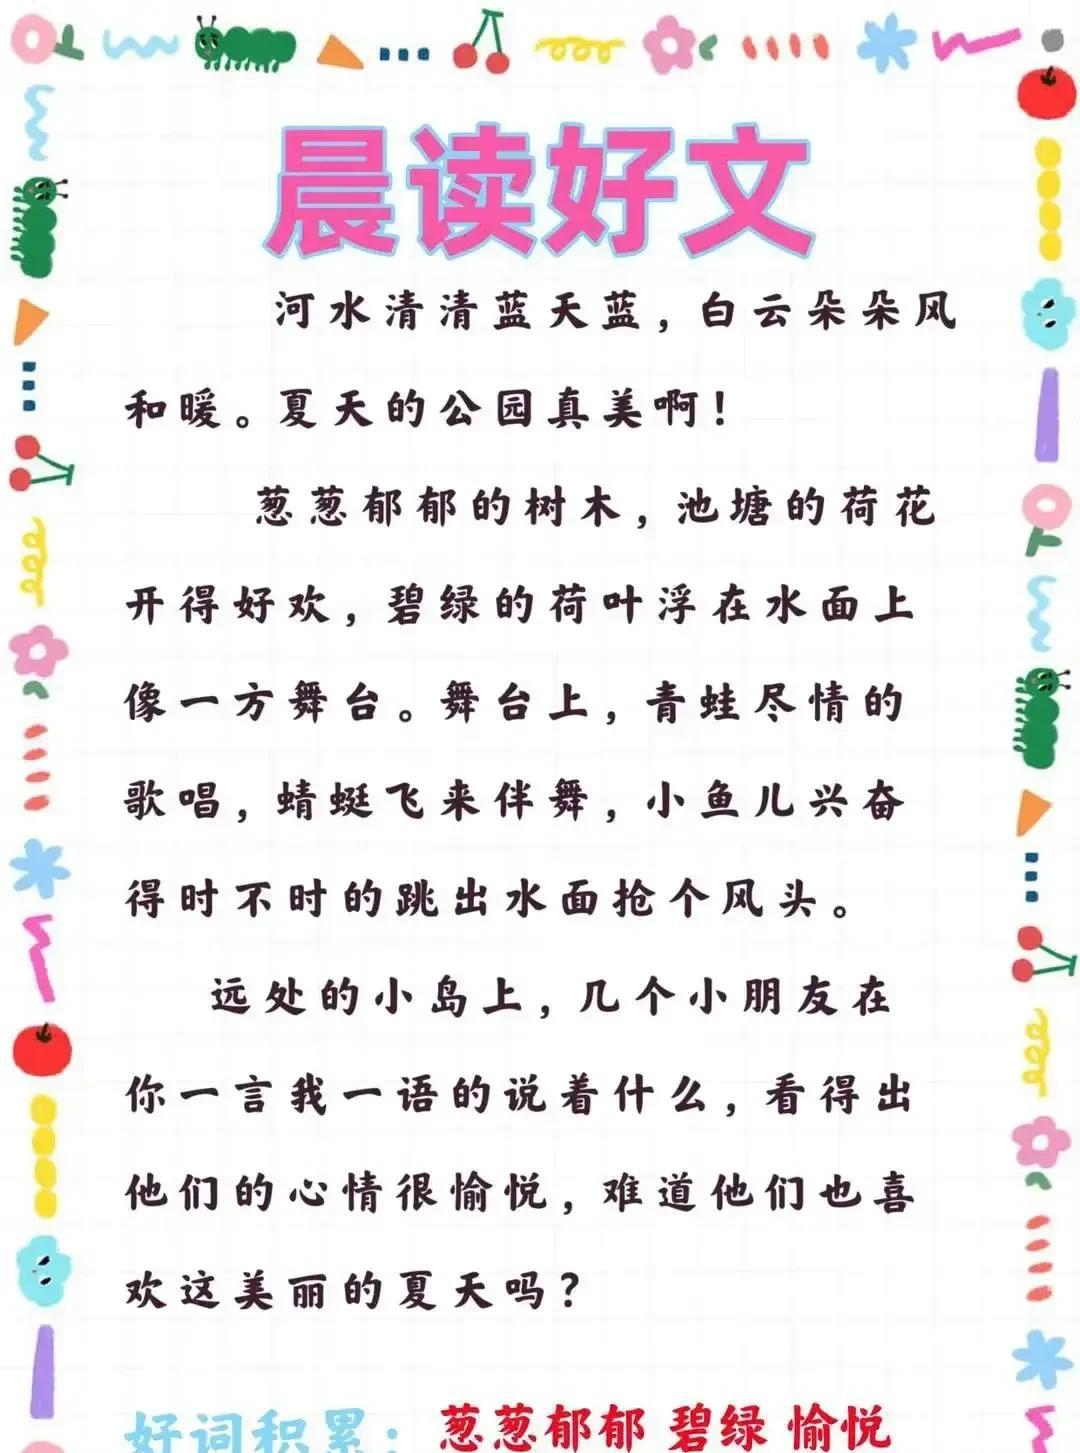 晨读好文
河水清清蓝天蓝，白云朵朵风
和暖。夏天的公园真美啊！
葱葱郁郁的树木，池塘的荷花
开得好欢，碧绿的荷叶浮在水面上
像一方舞台。舞台上，青蛙尽情的
歌唱，蜻蜓飞来伴舞，小鱼儿兴奋
得时不时的跳出水面抢个风头。
远处的小岛上，几个小朋友在
你一言我一语的说着什么，看得出
他们的心情很愉悦，难道他们也喜
欢这美丽的夏天吗？
好词积累：葱葱郁郁 碧绿 愉悦